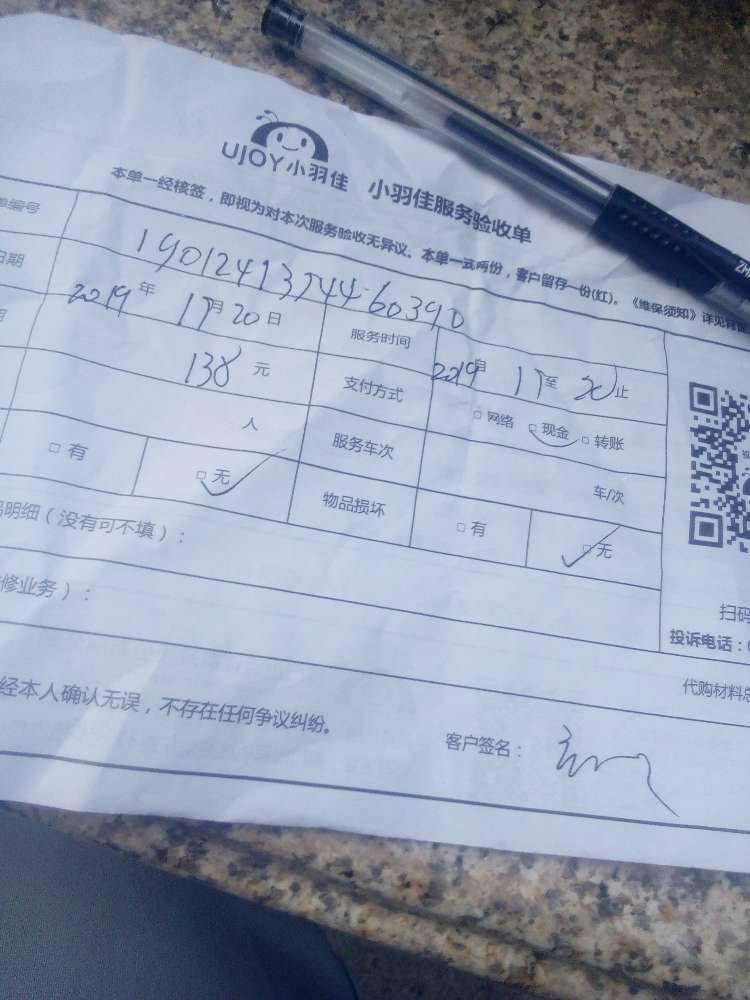 UJOY小羽佳 小羽佳服务验收单
本单一经核签，即视为对本次服务验收无异议。本单一式两份，客户留存一份(红)。《维保须知》详见背面
编号 1901241374460390
日期 2019年 11月20日 服务时间 2019月 11至 20止
138元 支付方式 □网络 □现金 □转账
人 服务车次 车/次
□有 □无 物品损坏 □有 □无
明细（没有可不填）：
修业务）：
扫码
投诉电话：
代购材料总
经本人确认无误，不存在任何争议纠纷。
客户签名：